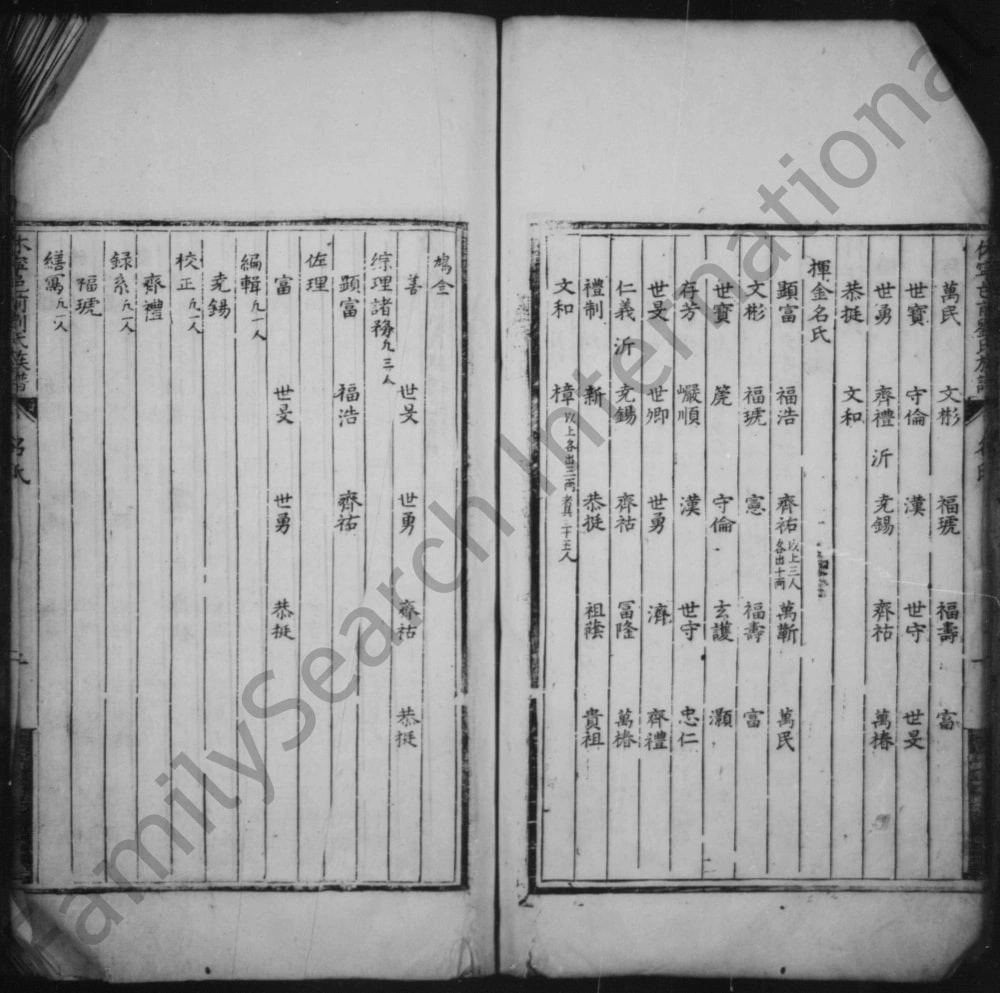 萬民 文彬 福琥 福壽 富
世寳 守倫 漢 世守 世旻
世勇 齊禮 沂 尭錫 齊祜 萬椿
恭挺 文和
揮金名氏
顕富 福浩 齊祜 以上三人各出十两 萬斬 萬民
文彬 福琥 憲 福壽 富
世寳 箎 守倫 玄護 灝
存芳 巗順 漢 世守 忠仁
世旻 世卿 世勇 濟 齊禮
仁義 沂 尭錫 齊祜 冨隆 萬椿
禮制 新 恭挺 祖蔭 貴祖
文和 樟 以上各出三两者共二十五人
鳩僉
善 世旻 世勇 齊祜 恭挺
綜理諸務凢三人
顕富 福浩 齊祜
佐理
富 世旻 世勇 恭挺
編輯凢一人
尭錫
校正凢一人
齊禮
録系凢一人
福琥
繕寫凢一人
FamilySearch International